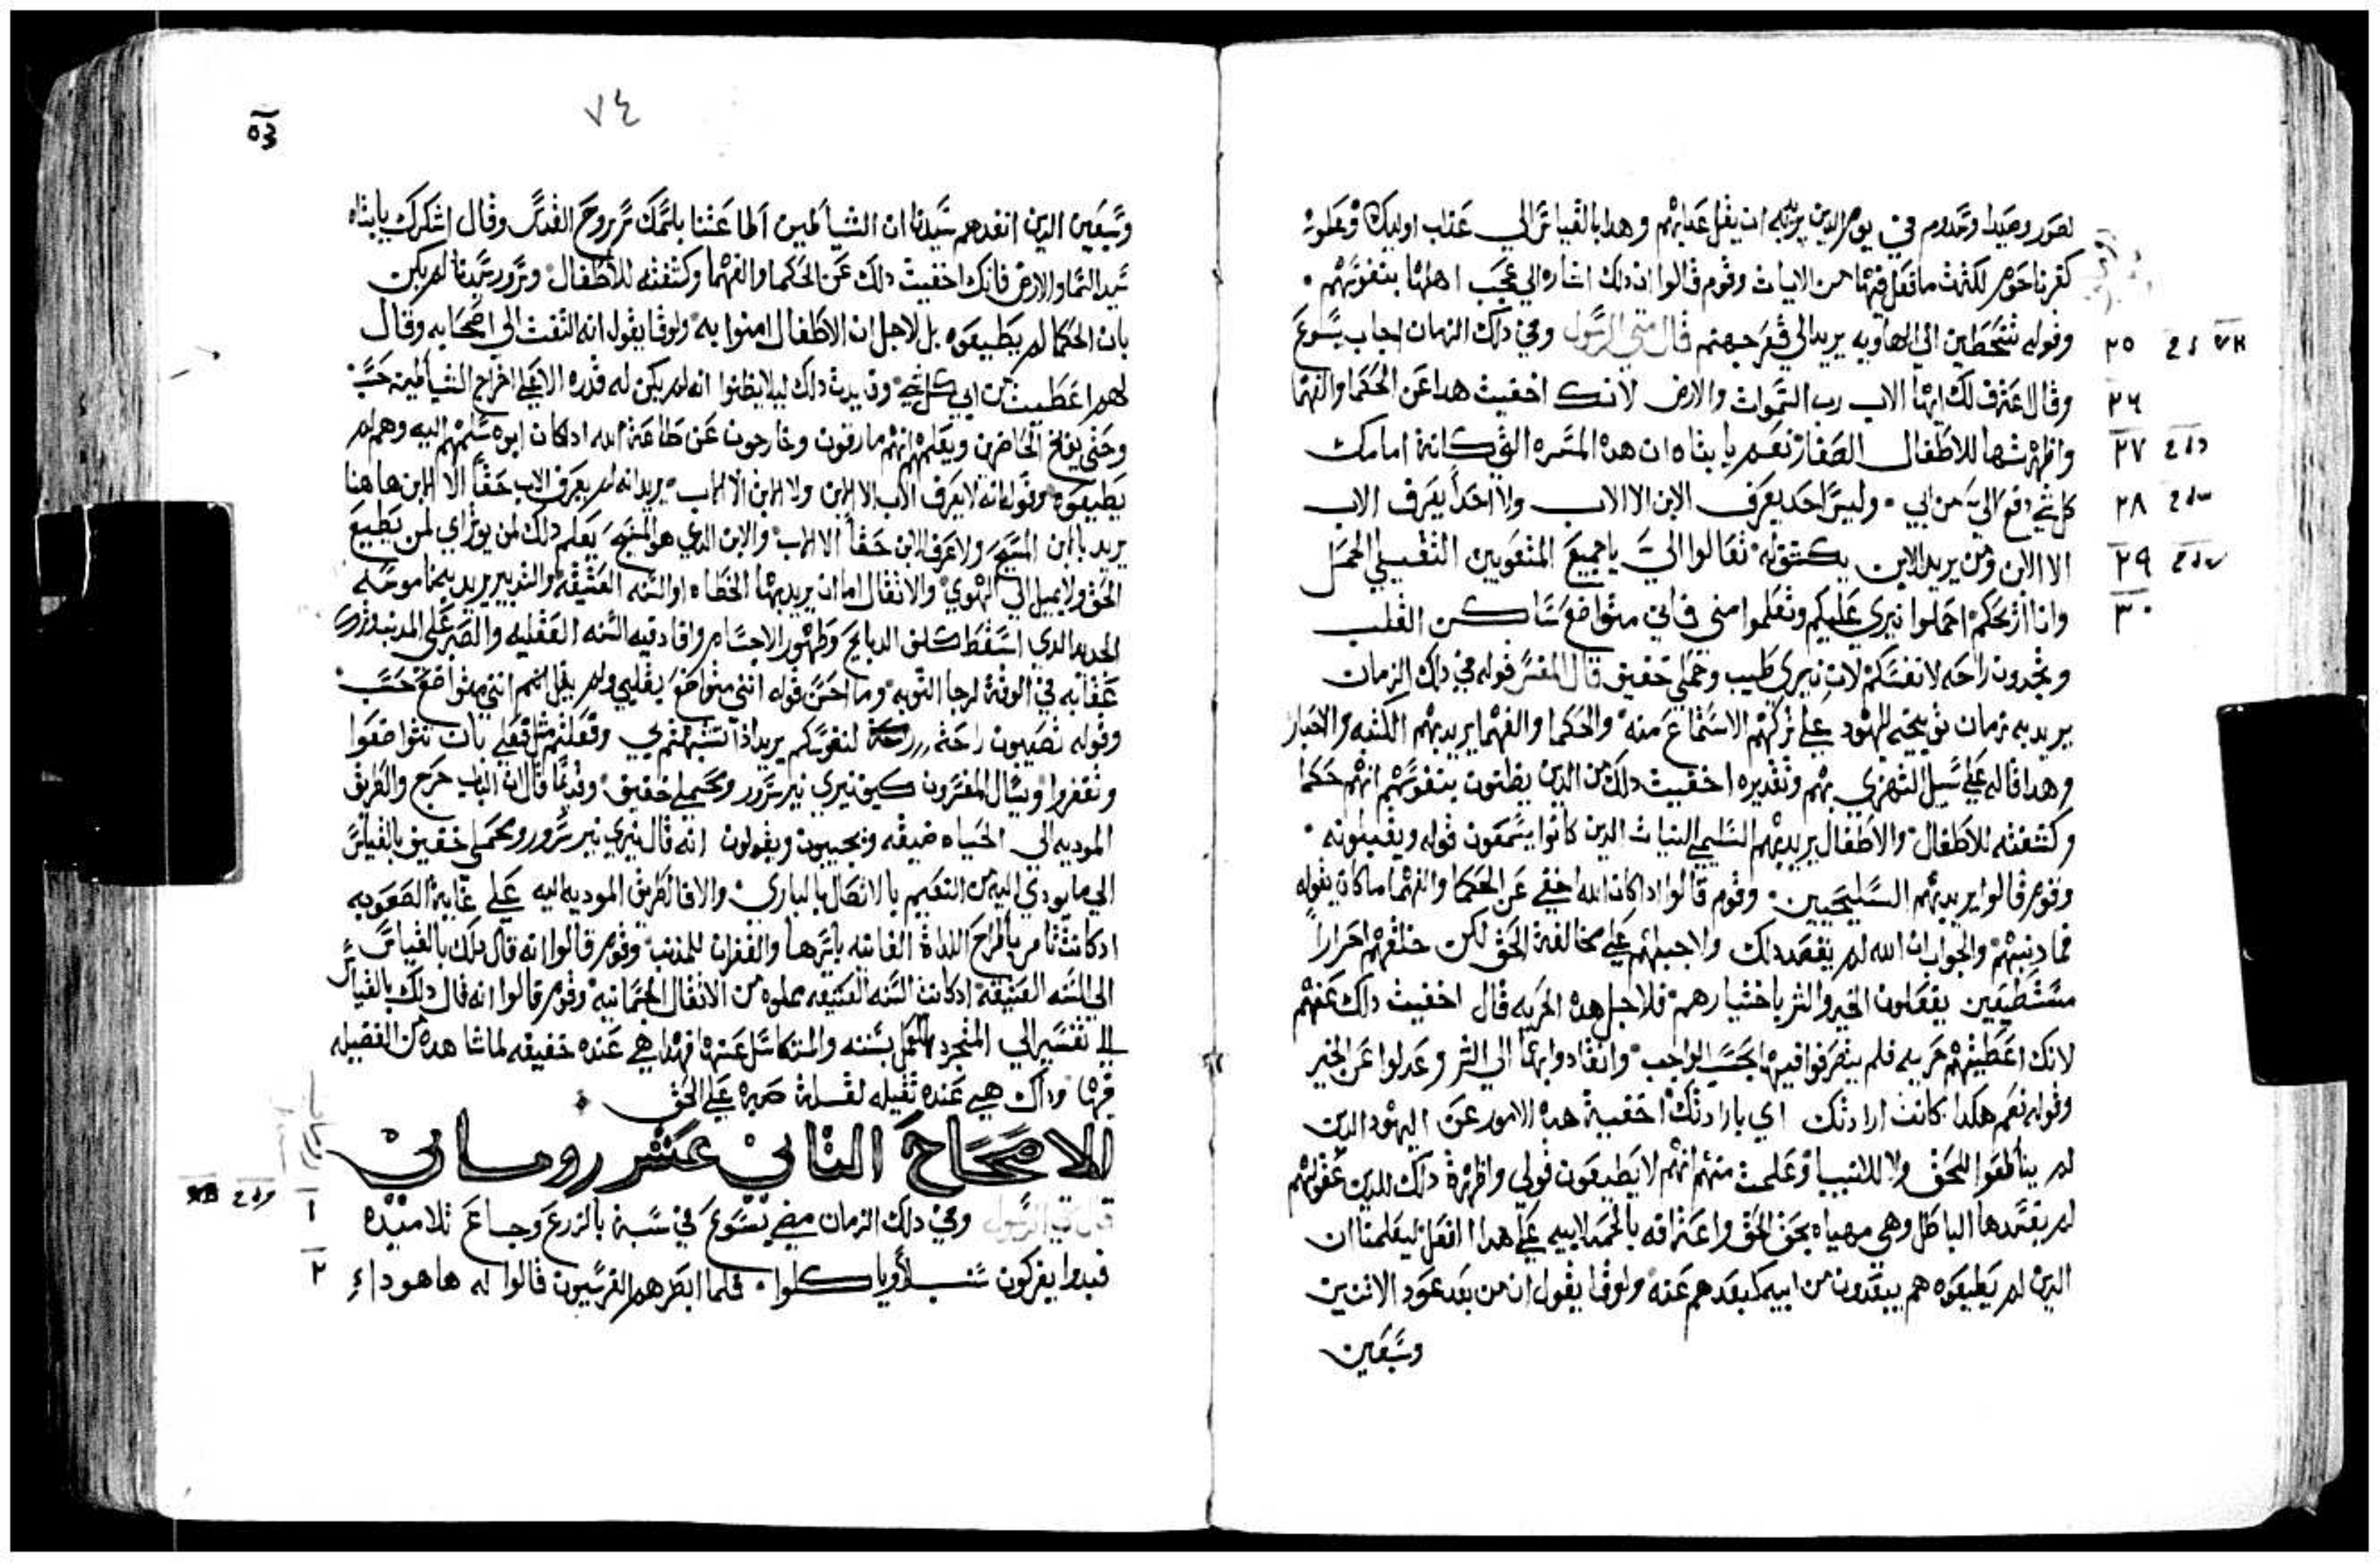 لصور وصيدا وسدوم في يوم الدين يريد به ان يقل عذابهم وهدا بالقياس الي عذاب اوليك وعلوية
كفرناحوم لكثرت ما فعل فيها من الايات وقوم قالوا ان دلك اشاره الي عجب اهلها بنفوسهم ٠
وقوله تنحطين الي الهاويه يريد الي قعر جهنم قال متي الرسول وفي دلك الزمان اجاب يسوع
٢٥
وقال اعترف لك ايها الاب رب السموات والارض لانك اخفيت هدا عن الحكما والفهما
٢٦
واظهرتها للاطفال الصغار نعم يا ابتاه ان هده المسره التي كانة امامك
٢٧
كل شي دفع الي من ابي ٠ وليس احد يعرف الابن الا الاب ولا احدا يعرف الاب
٢٨
الا الابن ومن يريد الابن يكشف له تعالوا الي يا جميع المتعوبين الثقيلي الحمل
٢٩
وانا اريحكم احملوا نيري عليكم وتعلموا مني فاني متواضع ساكن القلب
٣٠
وتجدون راحه لانفسكم لان نيري طيب وحملي خفيف قال المفسر قوله في دلك الزمان
يريد به زمان توبيخه لليهود علي تركهم الاستماع منه والحكما والفهما يريد بهم الكتبه والاحبار
وهدا قاله علي سبيل التهزي بهم وتقديره اخفيت دلك من الدين يظنون بنفوسهم انهم حكما
وكشفته للاطفال والاطفال يريد بهم السليمي النيات الدين كانوا يسمعون قوله ويقبلونه ٠
وقوم قالوا يريد بهم السليحيين ٠ وقوم قالوا ادا كان الله اخفي عن الحكما والفهما ما كان يقوله
فما دنبهم والجواب ان الله لم يقصد دلك ولا جبلهم علي مخالفة الحق لكن خلقهم احرارا
مستطيعين يفعلون الخير والشر باختيارهم فلاجل هده الحريه قال اخفيت دلك عنهم
لانك اعطيتهم حريه فلم يتصرفوا فيها بحسب الواجب وانقادوا بها الي الشر وعدلوا عن الخير
وقوله نعم هكدا كانت ارادتك اي بارادتك اخفية هده الامور عن اليهود الدين
لم يطيعوا للحق ولا للانبيا وعلمت منهم انهم لا يطيعون قولي واظهرة دلك للدين عقولهم
لم يفسدها الباطل وهي مهياه بحق الحق واعترافه بالحمد لابيه علي هدا الفعل ليعلمنا ان
الدين لم يطيعوه هم يبعدون من ابيه كبعدهم عنه ولوقا يقول ان من بعد عود الاتنين
وسبعين
٧٤
وسبعين الدين انفدهم سيدنا ان الشياطين اطاعتنا باسمك سر بروح القدس وقال اشكرك يا ابتاه
سيد السما والارض فانك اخفيت دلك عن الحكما والفهما وكشفته للاطفال وسرور سيدنا لم يكن
بان الحكما لم يطيعوه بل لاجل ان الاطفال امنوا به ولوقا يقول انه التفت الي اصحابه وقال
لهم اعطيت من ابي كل شي وفايدت دلك ليلا يظنوا انه لم يكن له قدره الا علي اخراج الشياطين حسب
وحتي يوبخ الحاضرين ويعلمهم انهم مارقون وخارجون عن طاعة الله اد كان ابوه سلمهم اليه وهم لم
يطيعوه وقوله انه لا يعرف الاب الا الابن ولا الابن الا الاب يريد انه لم يعرف الاب حقا الا الابن هاهنا
يريد بالابن المسيح ولا عرف الابن حقا الا الاب والابن الدي هو المسيح يعلم دلك لمن يوثر اي لمن يطيع
الحق ولا يميل الي الهوي والاثقال اما ان يريد بها الخطاه او السنه العتيقه والتدبير يريد به ناموسه
الجديد الدي اسقط كلف الدبايح وطهور الاجسام وافاد فيه السنه العقليه والصبر علي المدنب وترك
عقابه في الوقة لرجا التوبه وما احسن قوله انني متواضع بقلبي ولم يقل لهم انني متواضع حسب ٠
وقوله تصيبون راحة لنفوسكم يريد ادا تشبهتم بي وفعلتم مثل فعلي بان تتواضعوا
وتغفروا ويسال المفسرون كيف نيري نير سرور ومحملي خفيف وقدما قال ان الباب حرج والطريق
الموديه الي الحياه ضيقه ويجيبون ويقولون انه قال نيري نير سرور ومحملي خفيف بالقياس
الي ما يودي اليه من النعيم بالاتصال بالباري والا فالطريق الموديه اليه علي غاية الصعوبه
اد كانت تامر باطراح اللداة الفانيه باسرها والغفران للمدنب وقوم قالوا انه قال دلك بالقياس
الي السنه العتيقة اد كانت السنه العتيقه مملوه من الاثقال الجسمانيه وقوم قالوا انه قال دلك بالقياس
الي نفسين الي المتجرد للعمل بسنته والمتكاسل عنها فهدا هي عنده خفيفه لما شاهده من الفضيله
فيها وداك هي عنده ثقيله لقلة صبره علي الحق
الاصحاح التاني عشر روماني
قال متي الرسول وفي دلك الزمان مضي يسوع في سبة بالزرع وجاع تلاميده
١
فبدوا يفركون سنبلا وياكلوا ٠ فلما ابصرهم الفرسيون قالوا له ها هودا
٢